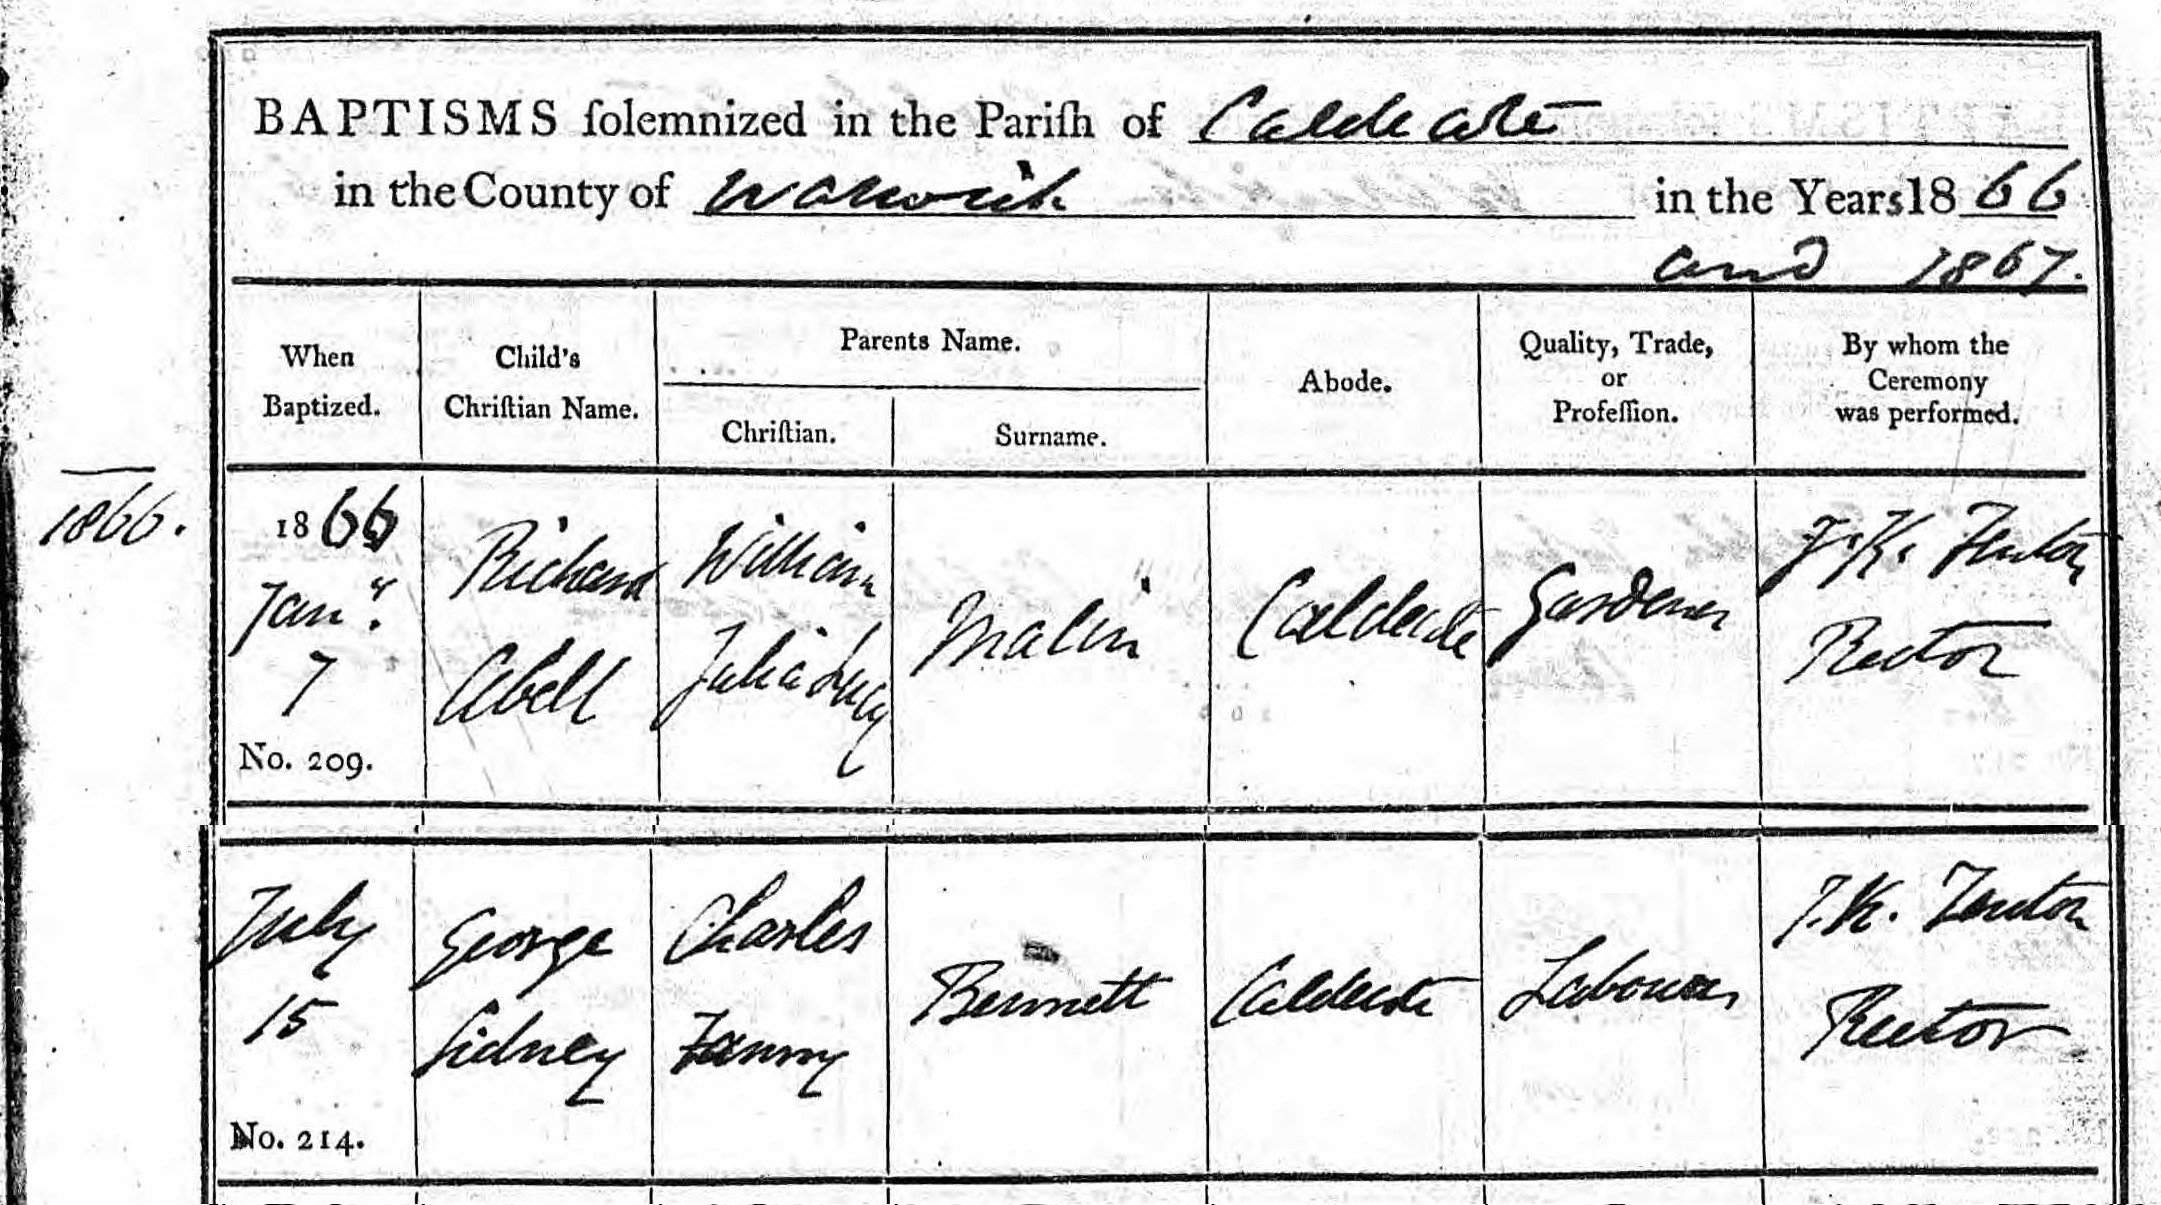 BAPTISMS ſolemnized in the Pariſh of Caldecote
in the County of Warwick in the Years 1866
and 1867.
When Baptized.
Child's Chriſtian Name.
Parents Name.
Chriſtian.
Surname.
Abode.
Quality, Trade, or Profeſſion.
By whom the Ceremony was performed.
1866.
1866
Jany.
7
No. 209.
Richard
Abell
William
Julia Lucy
Malin
Caldecote
Gardener
J. K. Fenton
Rector
July
15
No. 214.
George
Sidney
Charles
Fanny
Bennett
Caldecote
Labourer
J. K. Fenton
Rector